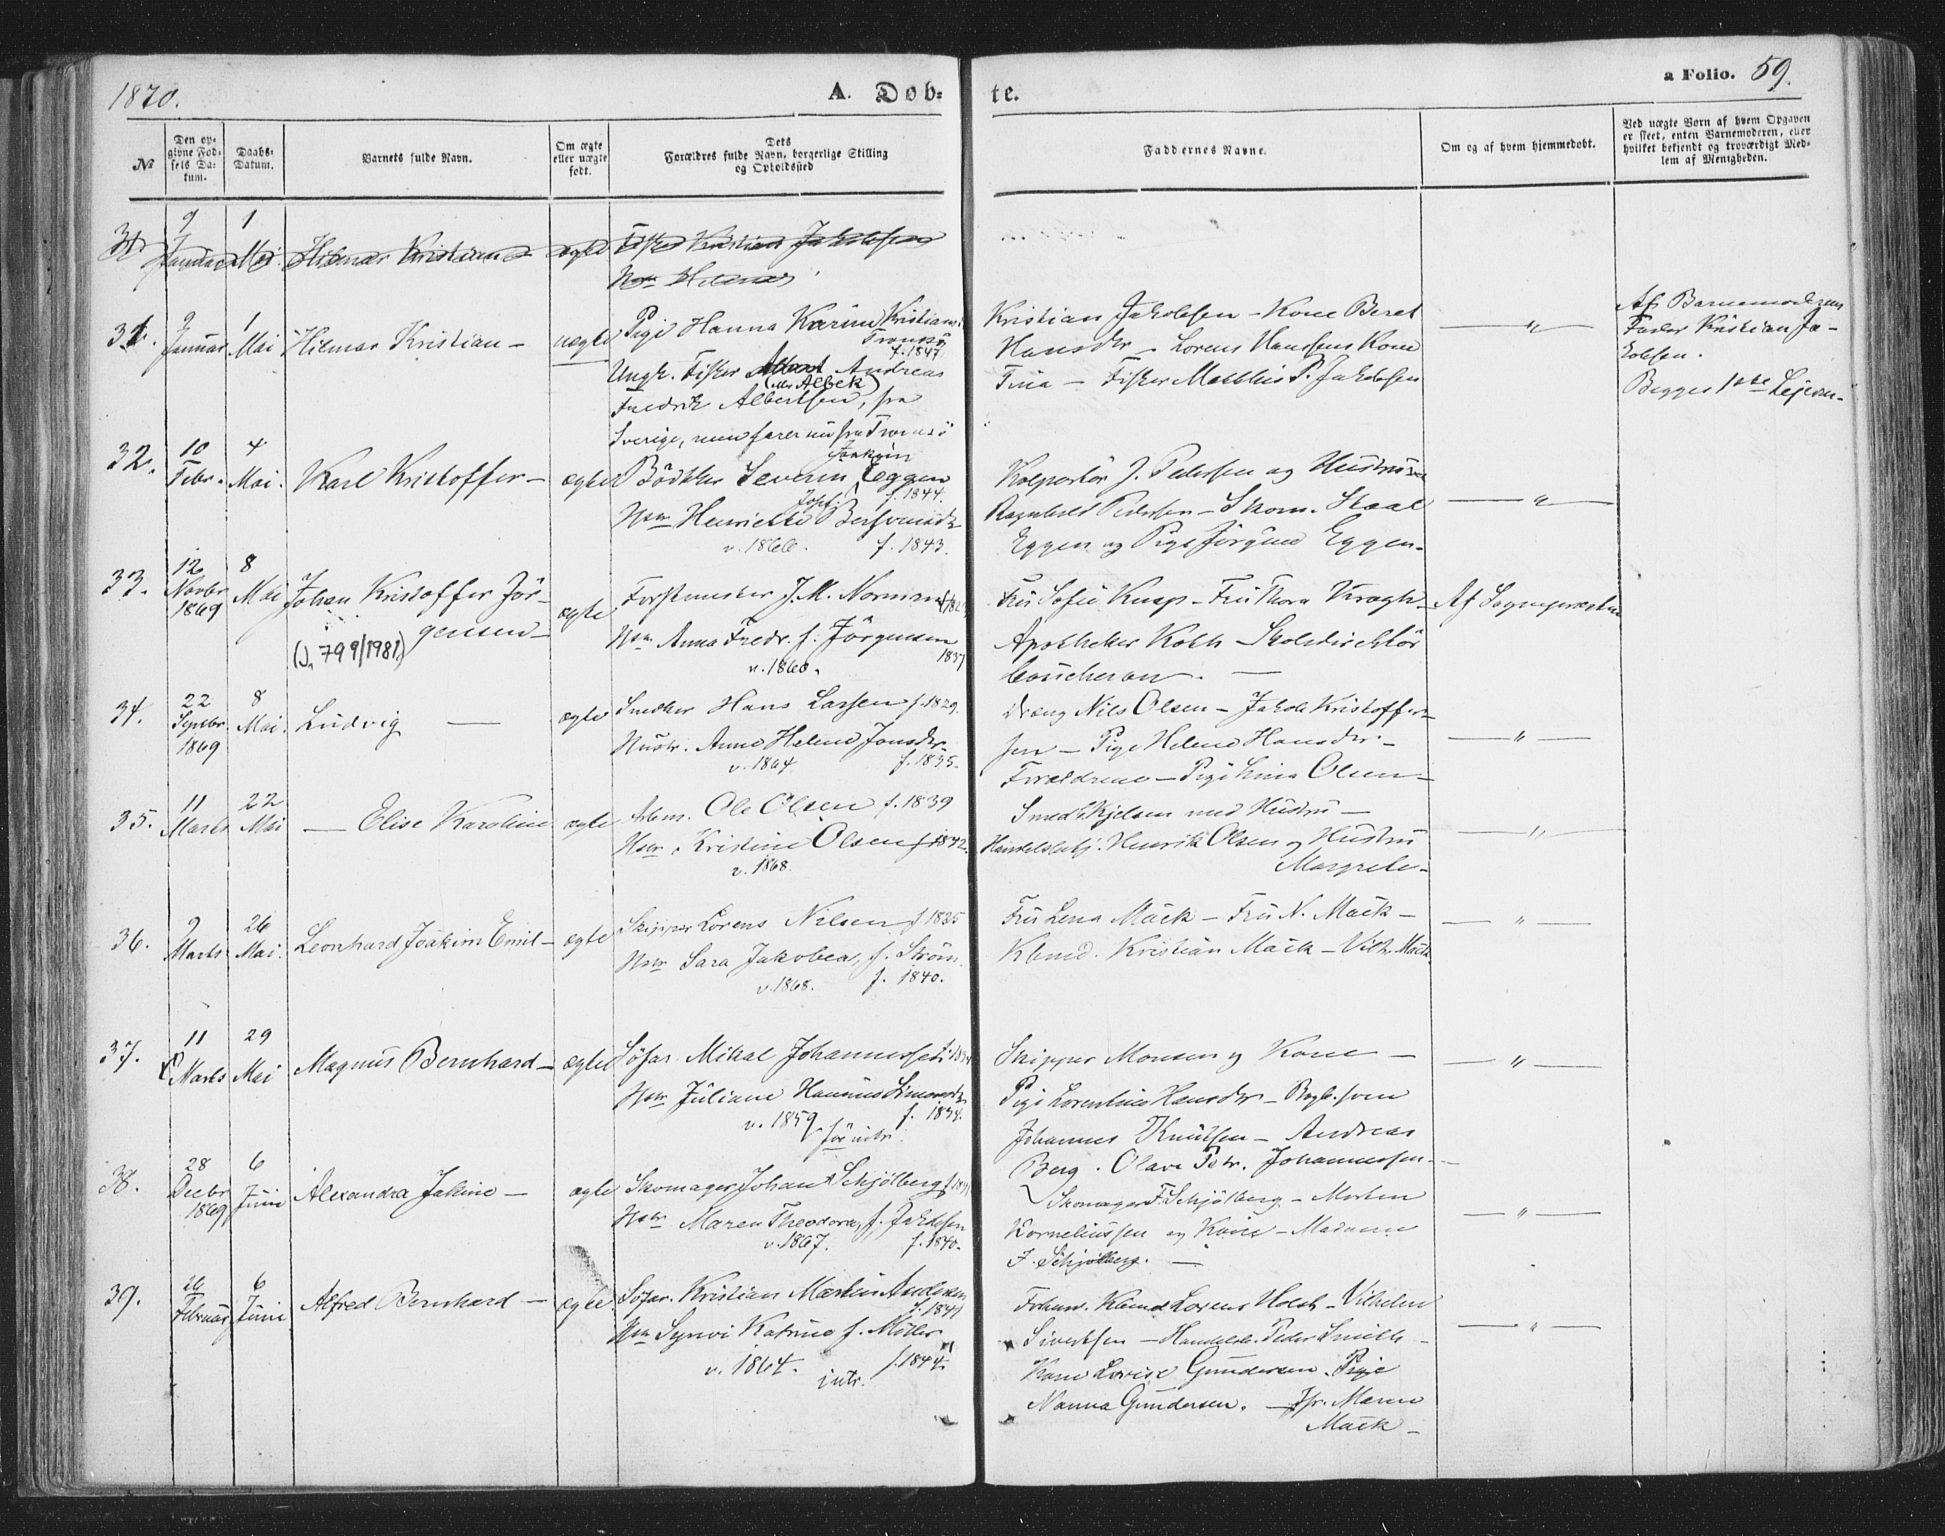 1870.
A. Døb-
te.
a Folio. 59.
№
Den op-
givne Fød-
sels Da-
tum.
Daabs-
Datum.
Barnets fulde Navn.
Om ægte
eller uægte
født.
Dets
Forældres fulde Navn, borgerlige Stilling
og Opholdssted
Faddernes Navne.
Om og af hvem hjemmedøbt.
Ved uægte Børn af hvem Opgaven
er skeet, enten Barnemoderen, eller
hvilket bekjendt og troværdigt Med-
lem af Menigheden.
9 Januar 1 Mai Hilmar Kristian ægte Fisker Kristian Jakobsen
Hstr Helena
31. 9 Januar 1 Mai Hilmar Kristian - uægte Pige Hanna Karine Kristians
Tromsø
f. 1847.
Ungk. Fisker Andreas
(Albek)
Fredrik Albertsen, fra
Sverige, men farer nu fra Tromsø
Kristian Jakobsen - Kone Beret
Hansdtr - Lorens Hanssens Kone
Tina - Fisker Matthis P. Jakobsen
"
Af Barnemoderens
Fader Kristian Ja-
kobsen.
Begges 1ste Lejerm-
32. 10 Febr. 4 Mai. Karl Kristoffer - ægte Bødtker Severin Joakim Eggen
f. 1844.
Hstr Henriette Josef. Berntsdtr
v. 1866. f. 1843.
Kolportør J. Pedersen og Hustru
Ragnhild Pedersen - Skom. Staal
Eggen og Pige Jørgine Eggen.
"
33. 12 Novbr 1869 8 Mai Johan Kristoffer Jør-
gensen -
(J. 799/1981)
ægte Forstmester J. M. Norman
Hstr Anna Fredr. f. Jørgensen
v. 1860. 1837
Fru Sofie Knap - Fru Thora Kragh -
Apotheker Koth - Skoledirektør
Coucheron. -
Af Sognepræsten
34. 22 Septbr. 1869 8 Mai. Ludvig - ægte Snedker Hans Larsen f. 1829.
Hustr. Anne Helene Jonsdtr.
v. 1864. f. 1835.
Dreng Nils Olsen - Jakob Kristoffer-
sen - Pige Helene Hansdtr. -
Forældrene - Pige Lina Olsen -
"
35. 11 Marts 22 Mai - Elise Karoline ægte Arbm. Ole Olsen f. 1839
Hstr. Kristine Olsen f. 1842.
v. 1868.
Smed Kjelsen med Hustru -
Handelsbetj. Henrik Olsen og Hustru
Margrete -
"
36. 9 Marts 26 Mai. Leonhard Joakim Emil - ægte Skipper Lorens Nilsen f. 1825
Hstr Sara Jakobea, f. Strøm
v. 1868. f. 1840.
Fru Lena Mack - Fru N. Mack -
Kbmd. Kristian Mack - Vilh. Mack
"
37. 11 Marts 29 Mai Magnus Bernhard - ægte Søfar. Mikal Johannessen
Hstr Juliane Hansine Simonsdtr
v. 1859. f. 1834.
før intr.
Skipper Monsen og Kone -
Pige Lorentine Hansdtr - Bagersvm
Johannes Knutsen - Andreas
Berg. Olave Petr. Johannessen -
"
38. 28 Decbr 1869 6 Juni Alexandra Jakine - ægte Skomager Johan Schjølberg
Hstr Maren Theodora, f. Jakobsen
v. 1867. f. 1840.
Skomager F. Schjølberg - Morten
Korneliussen og Kone - Madame
J. Schjølberg. -
"
39. 26 Februar 6 Juni Alfred Bernhard - ægte Søfar. Kristian Martin Andersen
f. 1841
Hstr Synvi Katrine f. Møller
v. 1864. f. 1844.
intr.
Forhenv. Kbmd Lorens Holst - Vilhelm
Sivertsen - Handelsb. Peder Smith -
Kone Lovise Gundersen. Pige
Nanna Gundersen. - Jfr. Maren
Mack -
"